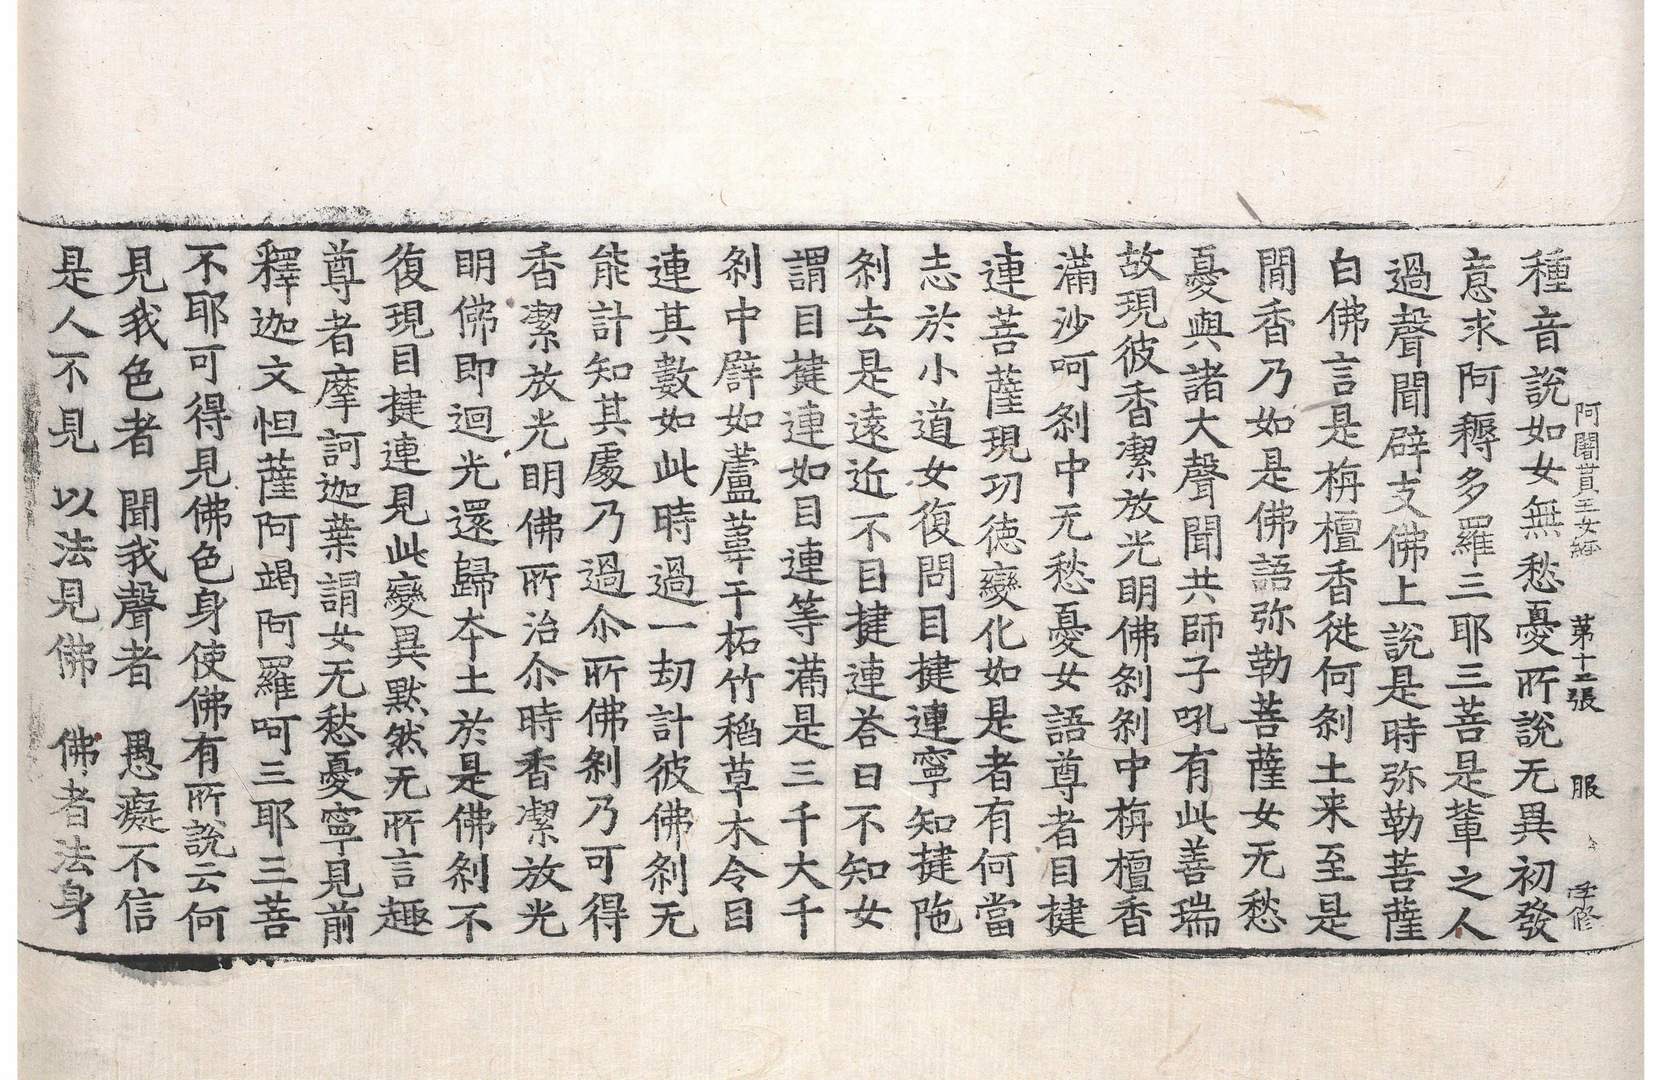 阿闍貰王女經 第十三張 服 孝修
種音說如女無愁憂所說无異初發
意求阿耨多羅三耶三菩是輩之人
過聲聞辟支佛上說是時弥勒菩薩
白佛言是栴檀香從何刹土来至是
聞香乃如是佛語弥勒菩薩女无愁
憂與諸大聲聞共師子吼有此善瑞
故現彼香潔放光明佛刹刹中栴檀香
滿沙呵刹中无愁憂女語尊者目揵
連菩薩現功徳變化如是者有何當
志於小道女復問目揵連寧知揵陁
刹去是遠近不目揵連荅曰不知女
謂目揵連如目連等滿是三千大千
刹中辟如蘆葦干柘竹稻草木令目
連其數如此時過一劫計彼佛刹无
能計知其處乃過尒所佛刹乃可得
香潔放光明佛所治尒時香潔放光
明佛即迴光還歸夲土於是佛刹不
復現目揵連見此變異默然无所言趣
尊者摩訶迦葉謂女无愁憂寧見前
釋迦文怛薩阿竭阿羅呵三耶三菩
不耶可得見佛色身使佛有所說云何
見我色者 聞我聲者 愚癡不信
是人不見 以法見佛 佛者法身